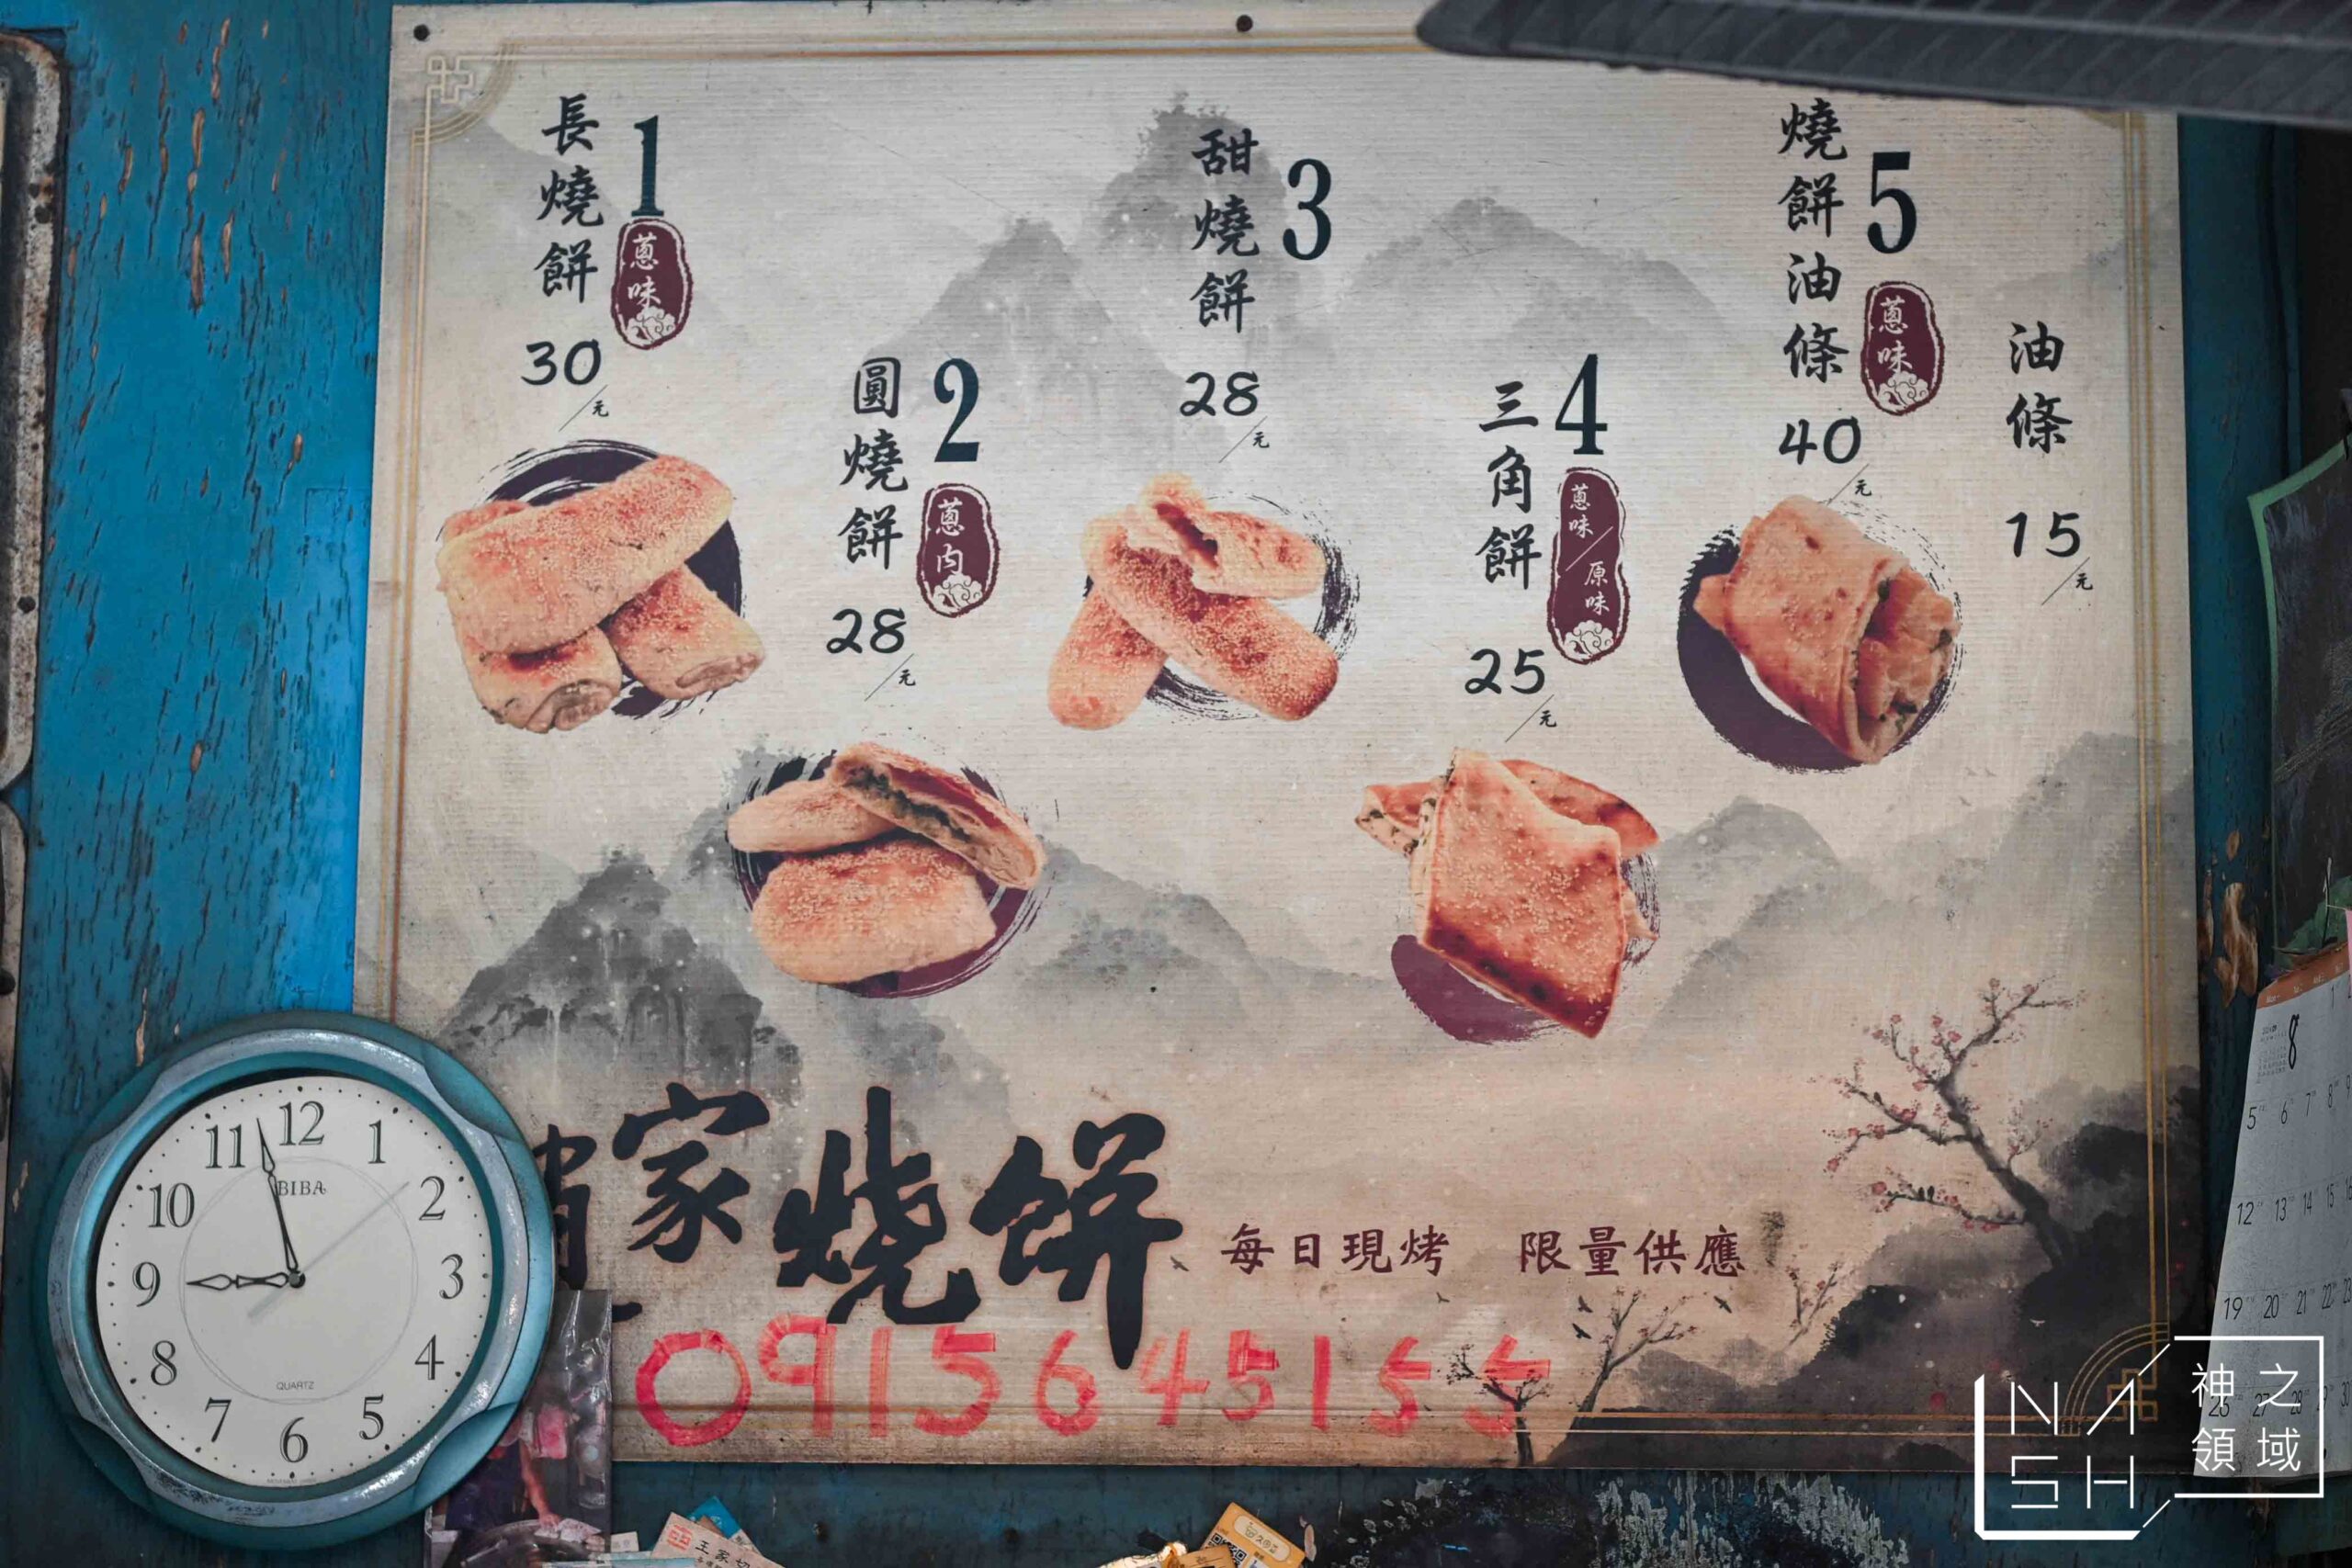 長燒餅
1
蔥味
30/元
圓燒餅
2
蔥內
28/元
甜燒餅
3
28/元
三角餅
4
蔥味/原味
25/元
燒餅油條
5
蔥味
40/元
油條
15/元
家燒餅
每日現烤 限量供應
0915645155
12
1
2
3
4
5
6
7
8
9
10
11
BIBA
QUARTZ
8
5 6 7 8
12 13 14 15
19 20 21 22 23
26 27 28 29 30
王家切
NASH
神之領域